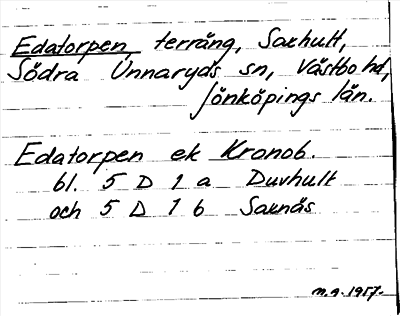 Edatorpen terräng, Saxhult,
Södra Unnaryds sn, Västbo hd,
Jönköpings län.
Edatorpen ek Kronob.
bl. 5 D 1 a Duvhult
och 5 D 1 b Saxnäs
m.a. 1957.